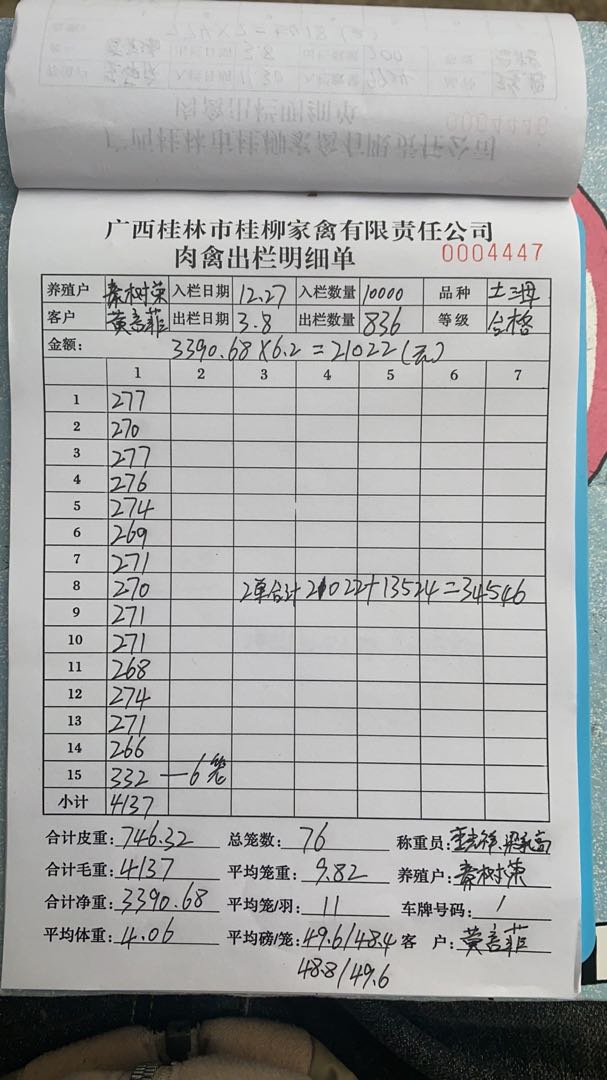 广西桂林市桂柳家禽有限责任公司
肉禽出栏明细单
0004446
广西桂林市桂柳家禽有限责任公司
肉禽出栏明细单 0004447
养殖户 秦树荣 入栏日期 12.27 入栏数量 10000 品种 土三
客户 黄 菲 出栏日期 3.8 出栏数量 836 等级 合格
金额: 3390.68×6.2=21022(元)
1 2 3 4 5 6 7
1 277
2 270
3 277
4 276
5 274
6 269
7 271
8 270 2单合计 21022+13524=34546
9 271
10 271
11 268
12 274
13 271
14 266
15 332 —6笼
小计 4137
合计皮重: 746.32 总笼数: 76 称重员:
合计毛重: 4137 平均笼重: 9.82 养殖户: 秦树荣
合计净重: 3390.68 平均笼/羽: 11 车牌号码: /
平均体重: 4.06 平均磅/笼: 49.6/48.4 客 户: 黄 菲
48.8/49.6